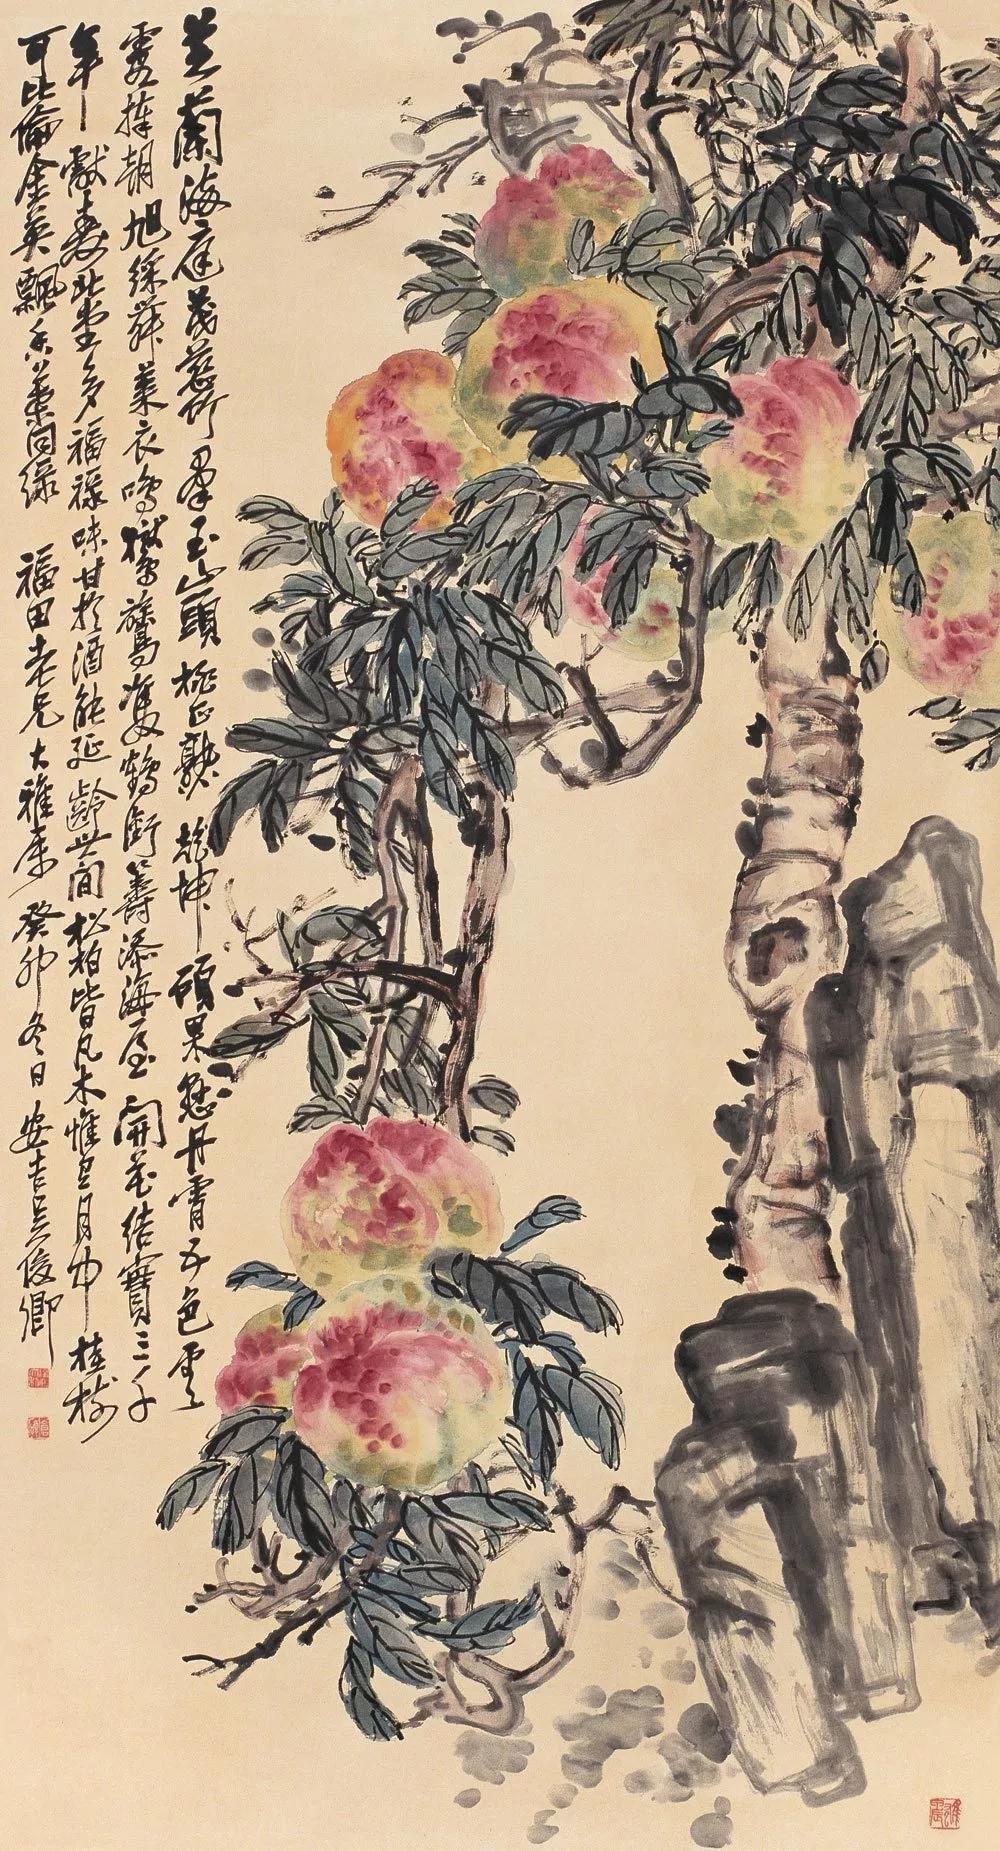 芝蘭海庭茂慈竹羣玉山頭桃正熟乾坤碩果懸丹霄五色雲
霞捧朝旭綵舞萊衣鳴嶽鸑雙鶴銜籌添海屋開花結實三千
年獻壽北堂多福祿味甘於酒能延齡世間松柏皆凡木惟有月中桂樹
可比倫金英飄香葉同綠 福田老兄大雅屬癸卯冬日安吉吳俊卿